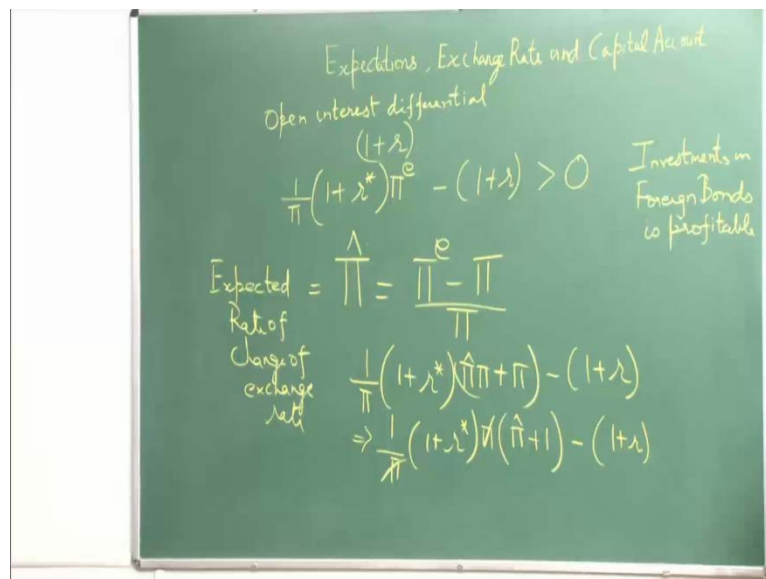 Expectations, Exchange Rate and Capital Account
Open interest differential
(1+r)
1/π (1+r*) π^e - (1+r) > 0
Investments in
Foreign Bonds
is profitable
Expected = π̂ = (π^e - π)/π
Rate of
change of
exchange
rate
1/π (1+r*)(π̂π+π) - (1+r)
⇒ 1/π (1+r*) π(π̂+1) - (1+r)